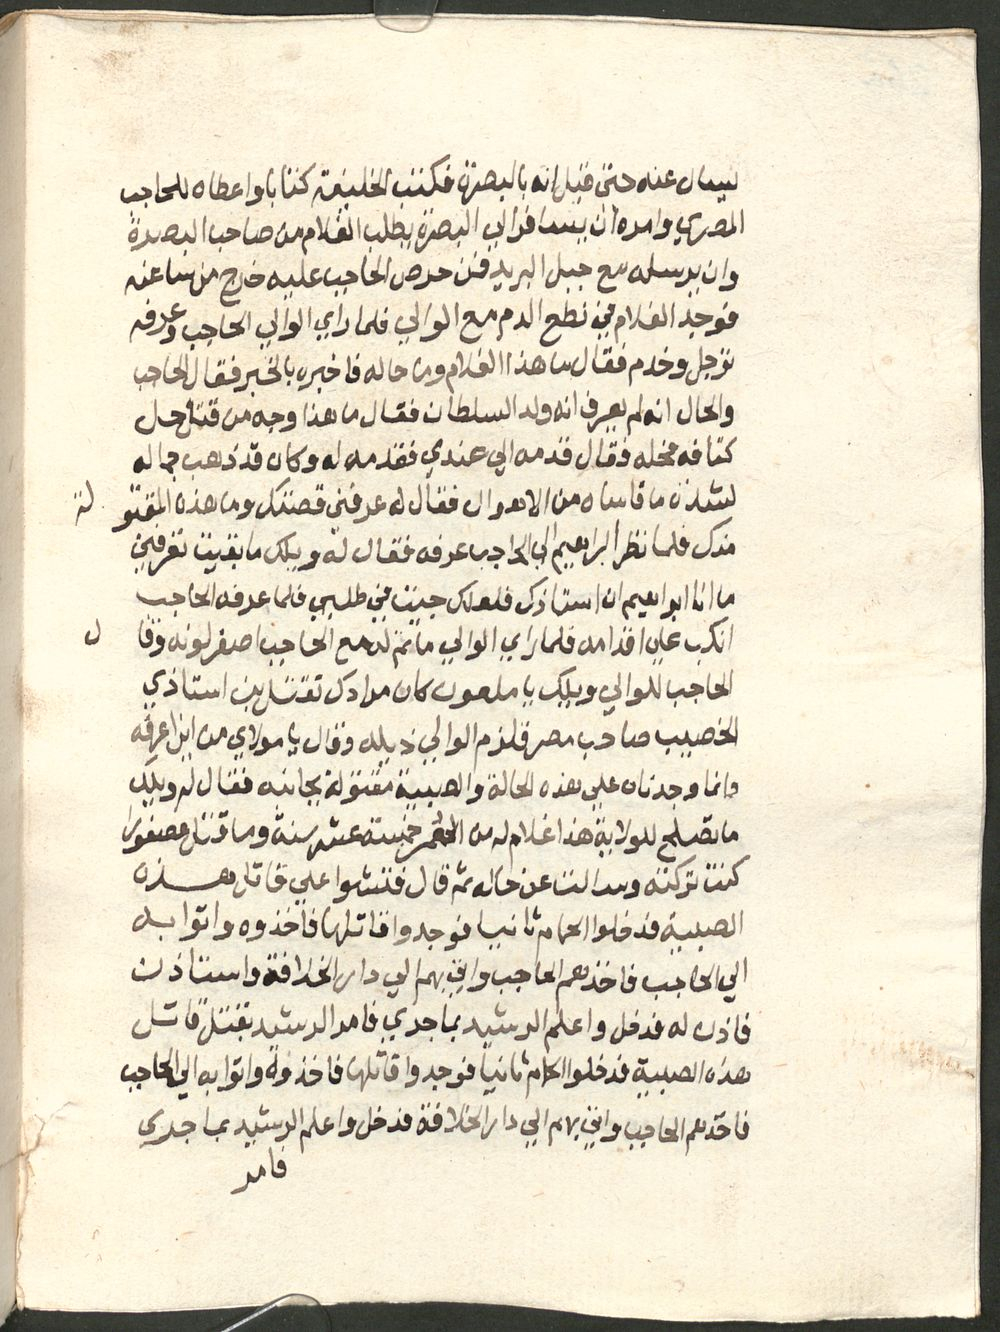 ليسال عنه حتى قيل انه بالبصرة فكتب الخليفة كتابا واعطاه للحاجب
المصري وامره ان يسافر الي البصرة يطلب الغلام من صاحب البصرة
وان يرسله مع خيل البريد فمن حرص الحاجب عليه خرج من ساعته
فوجد الغلام في نطع الدم مع الوالي فلما راي الوالي الحاجب وعرفه
ترجل وخدم فقال ما هذا الغلام وما حاله فاخبره بالخبر فقال الحاجب
والحال انه لم يعرف انه ولد السلطان فقال ما هذا وجه من قتل حل
كتافه فحله فقال قدمه الي عندي فقدمه له وكان قد ذهب جماله
لشدة ما قاساه من الاهوال فقال له عرفني قصتك وما هذه المقتو لة
معك فلما نظر ابراهيم الي الحاجب عرفه فقال له ويلك ما بقيت تعرفني
ما انا ابراهيم ابن استاذك فلعلك جييت في طلبي فلما عرفه الحاجب
انكب علي اقدامه فلما راي الوالي ما تم له مع الحاجب اصفر لونه وقا ل
الحاجب للوالي ويلك يا ملعون كان مرادك تقتل بن استاذي
الخصيب صاحب مصر فلزم الوالي ذيله وقال يا مولاي من اين اعرفه
وانما وجدناه علي هذه الحالة والصبية مقتولة بجانبه فقال له ويلك
ما تصلح للولاية هذا غلام له من العمر خمسة عشر سنة وما قتل عصفور
كنت تركته وسالت عن حاله ثم قال فتشوا علي قاتل هذه
الصبية فدخلوا الحمام ثانيا فوجدوا قاتلها فاخذوه واتوا به
الي الحاجب فاخذهم الحاجب واتي بهم الي دار الخلافة واستاذن
فاذن له فدخل واعلم الرشيد بما جري فامر الرشيد بقتل قاتل
هذه الصبية فدخلوا الحمام ثانيا فوجدوا قاتلها فاخذوه واتوا به الي الحاجب
فاخذهم الحاجب واتي بهم الي دار الخلافة فدخل واعلم الرشيد بما جري
فامر